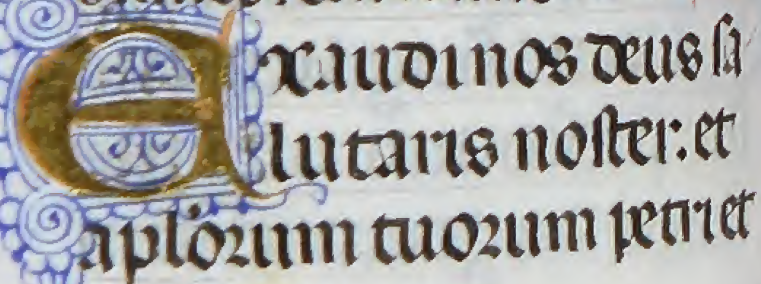 Exaudi nos deus sa
lutaris noster. et
aplorum tuorum petri et